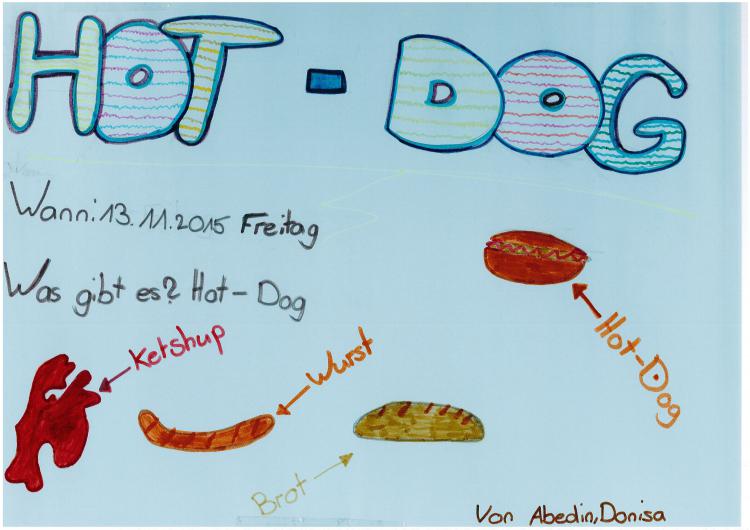 HOT - DOG
Wann: 13.11.2015 Freitag
Was gibt es? Hot-Dog
Hot-Dog
Ketshup
Wurst
Brot
Von Abedin, Donisa